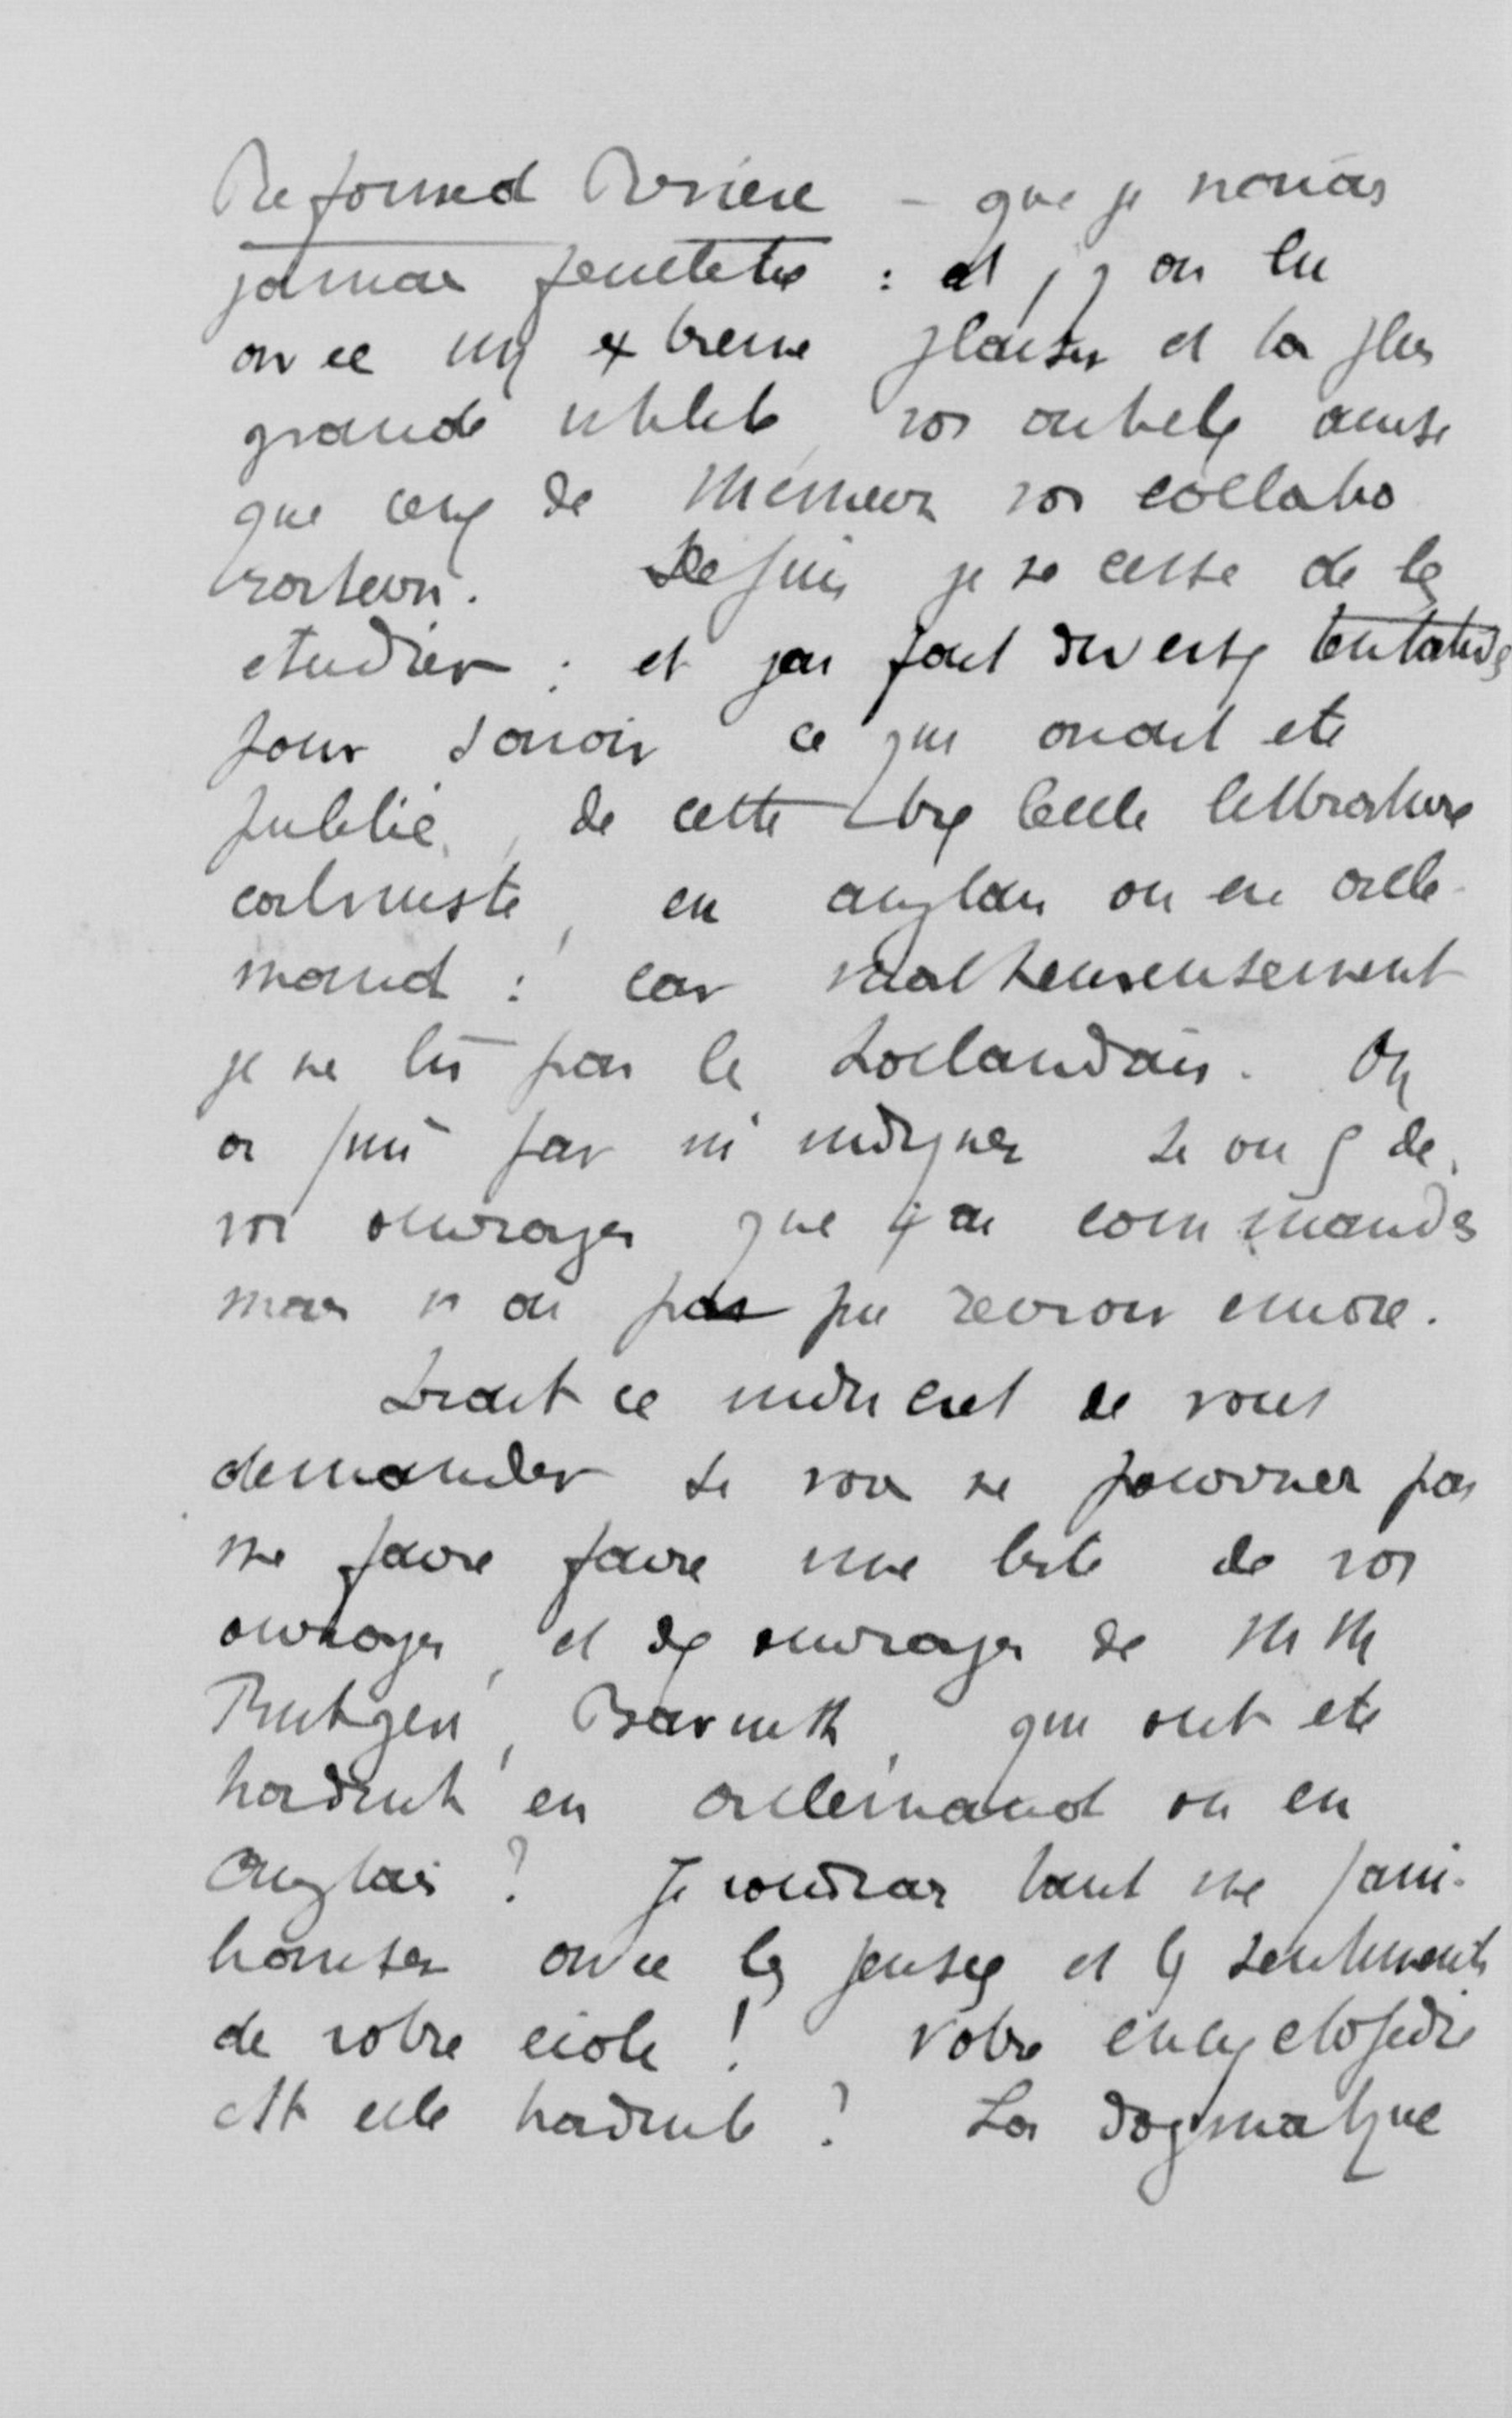 Reformed Review – que je n'avais
jamais feuilletée : et j'y ai lu
avec un extrême plaisir et la plus
grande utilité, vos articles ainsi
que ceux de Messieurs vos collabo
rateurs. Depuis je ne cesse de les
étudier : et j'ai fait diverses tentatives
pour savoir ce qui avait été
publié, de cette très belle littérature
calviniste, en anglais ou en alle-
mand : car malheureusement
je ne lis pas le hollandais. On
a fini par m'indiquer 4 ou 5 de
vos ouvrages que j'ai commandés
mais n'ai pas pu recevoir encore.
Serait ce indiscret de vous
demander si vous ne pourriez pas
me faire faire une liste de vos
ouvrages, et des ouvrages de MM
Rutgers, Bavinck, qui ont été
traduits en allemand ou en
Anglais ? Je voudrais tant me fami-
liariser avec les pensées et les sentiments
de votre école ! Votre encyclopédie
est elle traduite ? La dogmatique